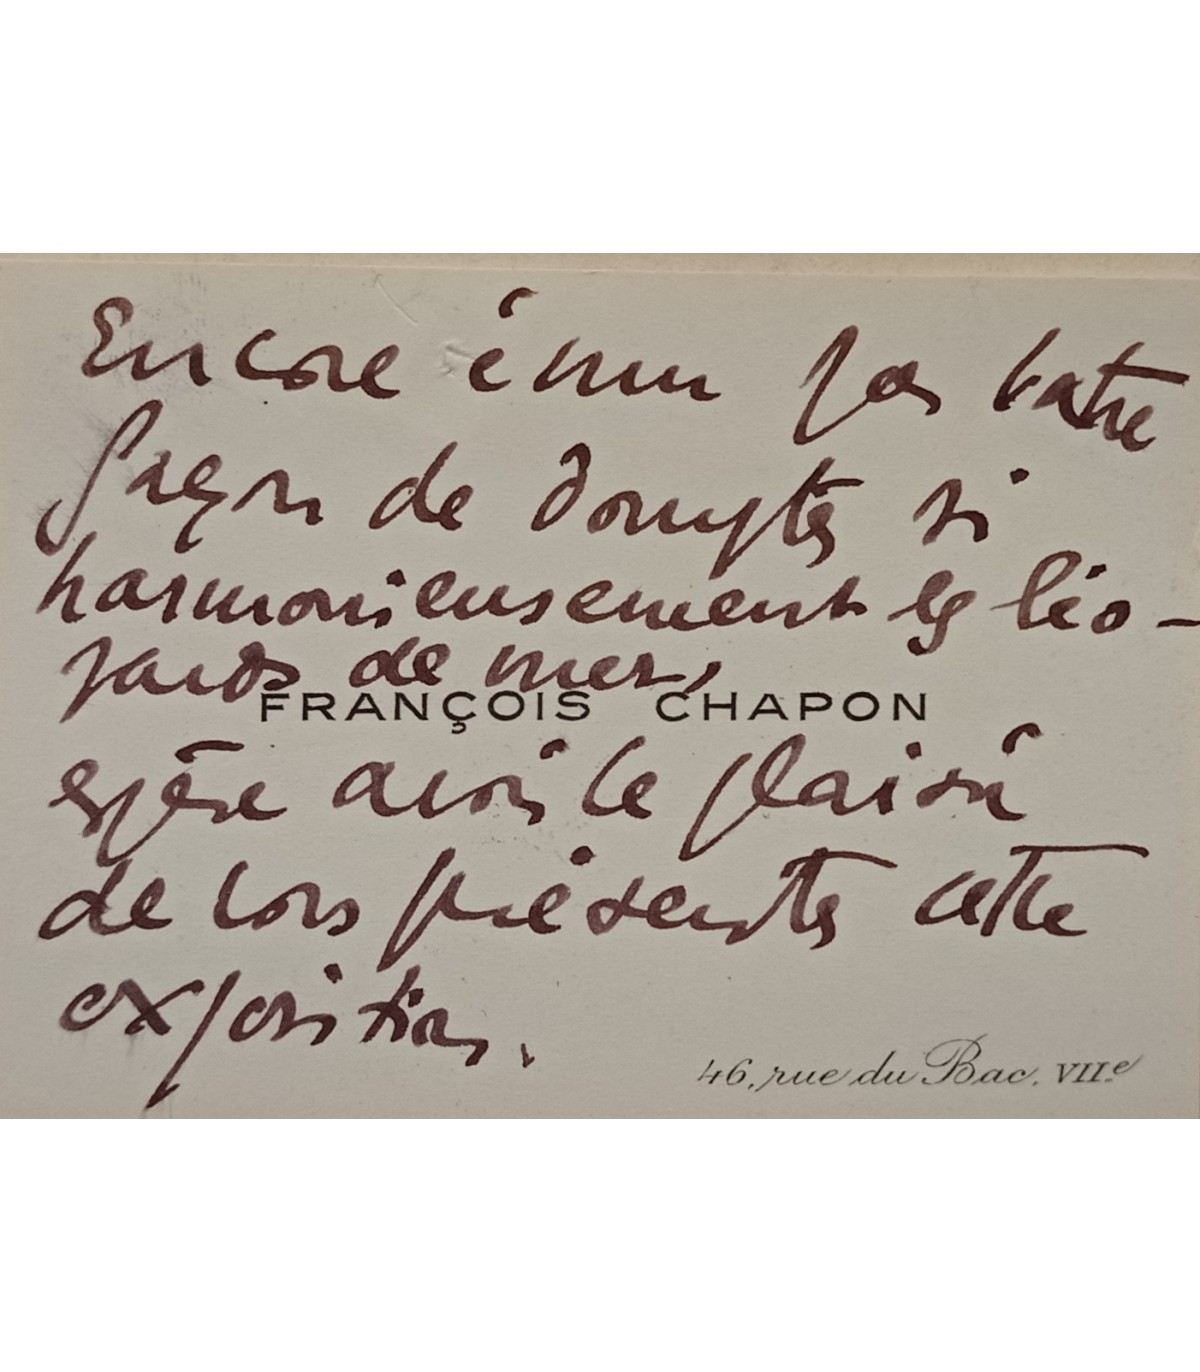 Encore ému par votre
façon de dompter si
harmonieusement les léo-
pards de mer,
FRANÇOIS CHAPON
espère avoir le plaisir
de vous présenter cette
exposition.
46, rue du Bac. VII.e